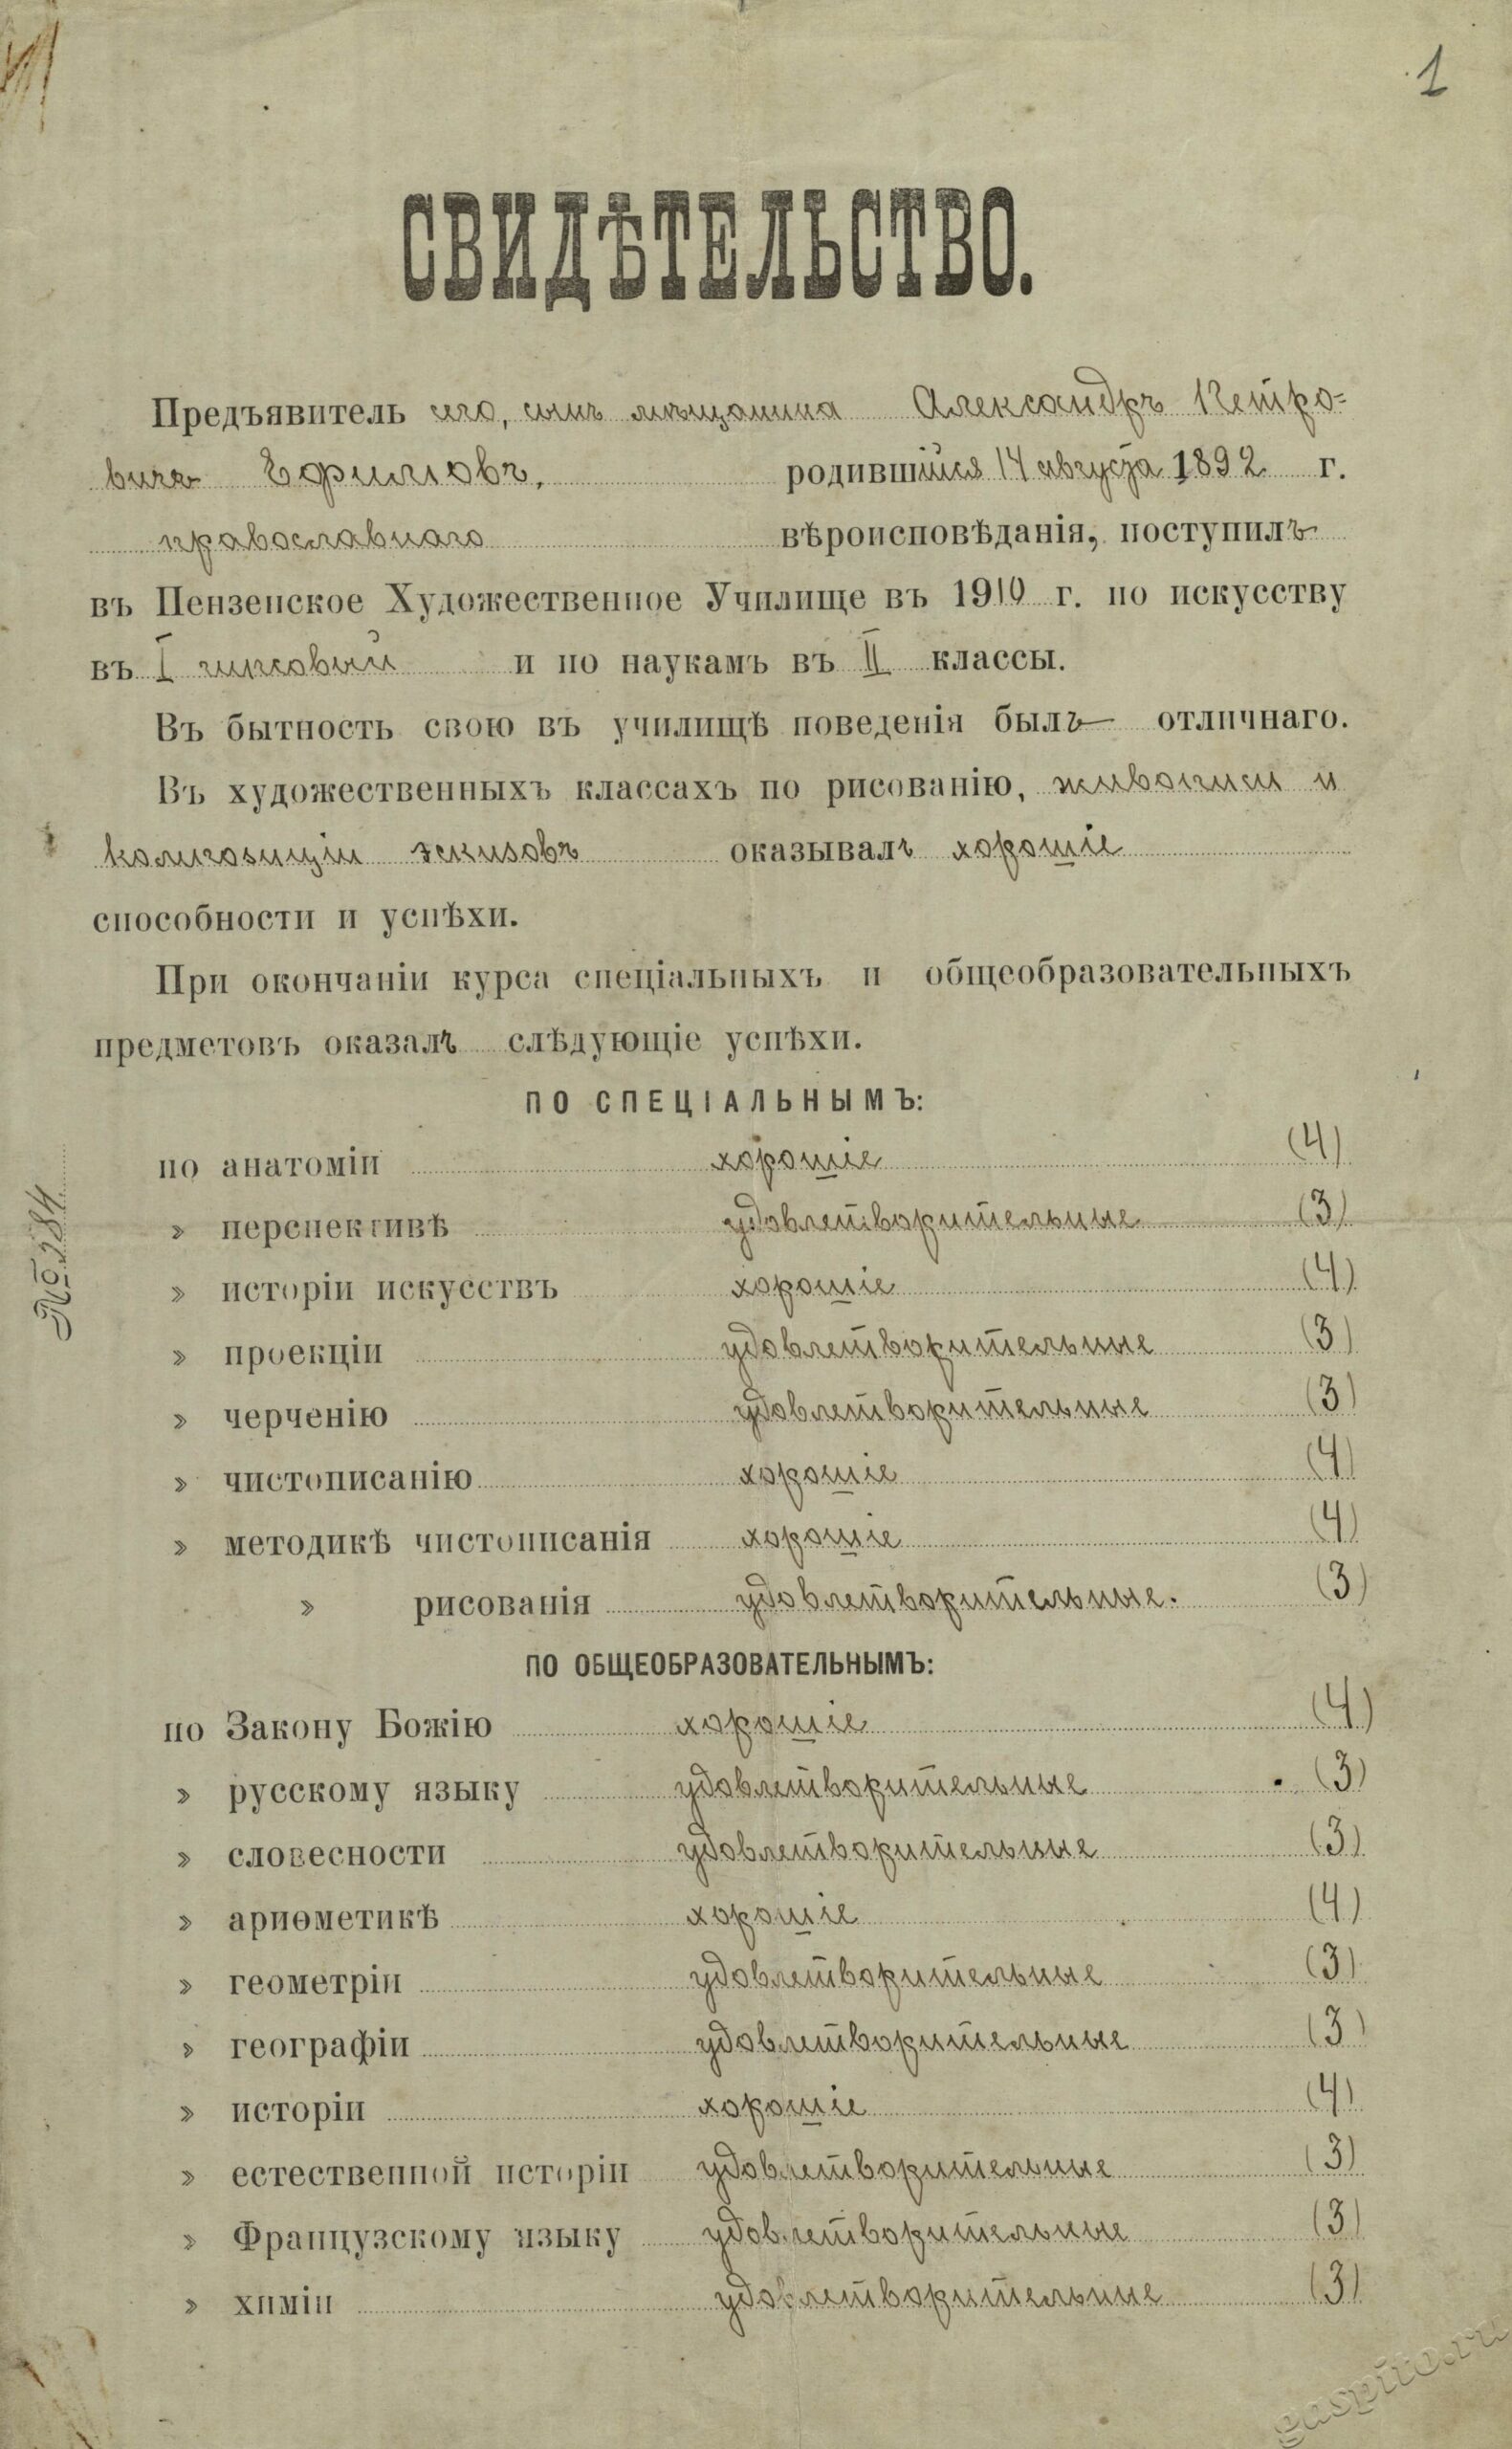 1
СВИДѢТЕЛЬСТВО.
Предъявитель сего, сынъ мѣщанина Александръ Петро-
вичъ Ефимовъ, родившійся 14 августа 1892 г.
православнаго вѣроисповѣданія, поступилъ
въ Пензенское Художественное Училище въ 1910 г. по искусству
въ I гипсовый и по наукамъ въ II классы.
Въ бытность свою въ училищѣ поведенія былъ отличнаго.
Въ художественныхъ классахъ по рисованію, живописи и
композиціи эскизовъ оказывалъ хорошіе
способности и успѣхи.
При окончаніи курса спеціальныхъ и общеобразовательныхъ
предметовъ оказалъ слѣдующіе успѣхи.
ПО СПЕЦІАЛЬНЫМЪ:
по анатоміи хорошіе (4)
» перспективѣ удовлетворительные (3)
» исторіи искусствъ хорошіе (4)
» проекціи удовлетворительные (3)
» черченію удовлетворительные (3)
» чистописанію хорошіе (4)
» методикѣ чистописанія хорошіе (4)
» рисованія удовлетворительные. (3)
ПО ОБЩЕОБРАЗОВАТЕЛЬНЫМЪ:
по Закону Божію хорошіе (4)
» русскому языку удовлетворительные (3)
» словесности удовлетворительные (3)
» ариѳметикѣ хорошіе (4)
» геометріи удовлетворительные (3)
» географіи удовлетворительные (3)
» исторіи хорошіе (4)
» естественной исторіи удовлетворительные (3)
» Французскому языку удовлетворительные (3)
» химіи удовлетворительные (3)
№ 284
gaspito.ru